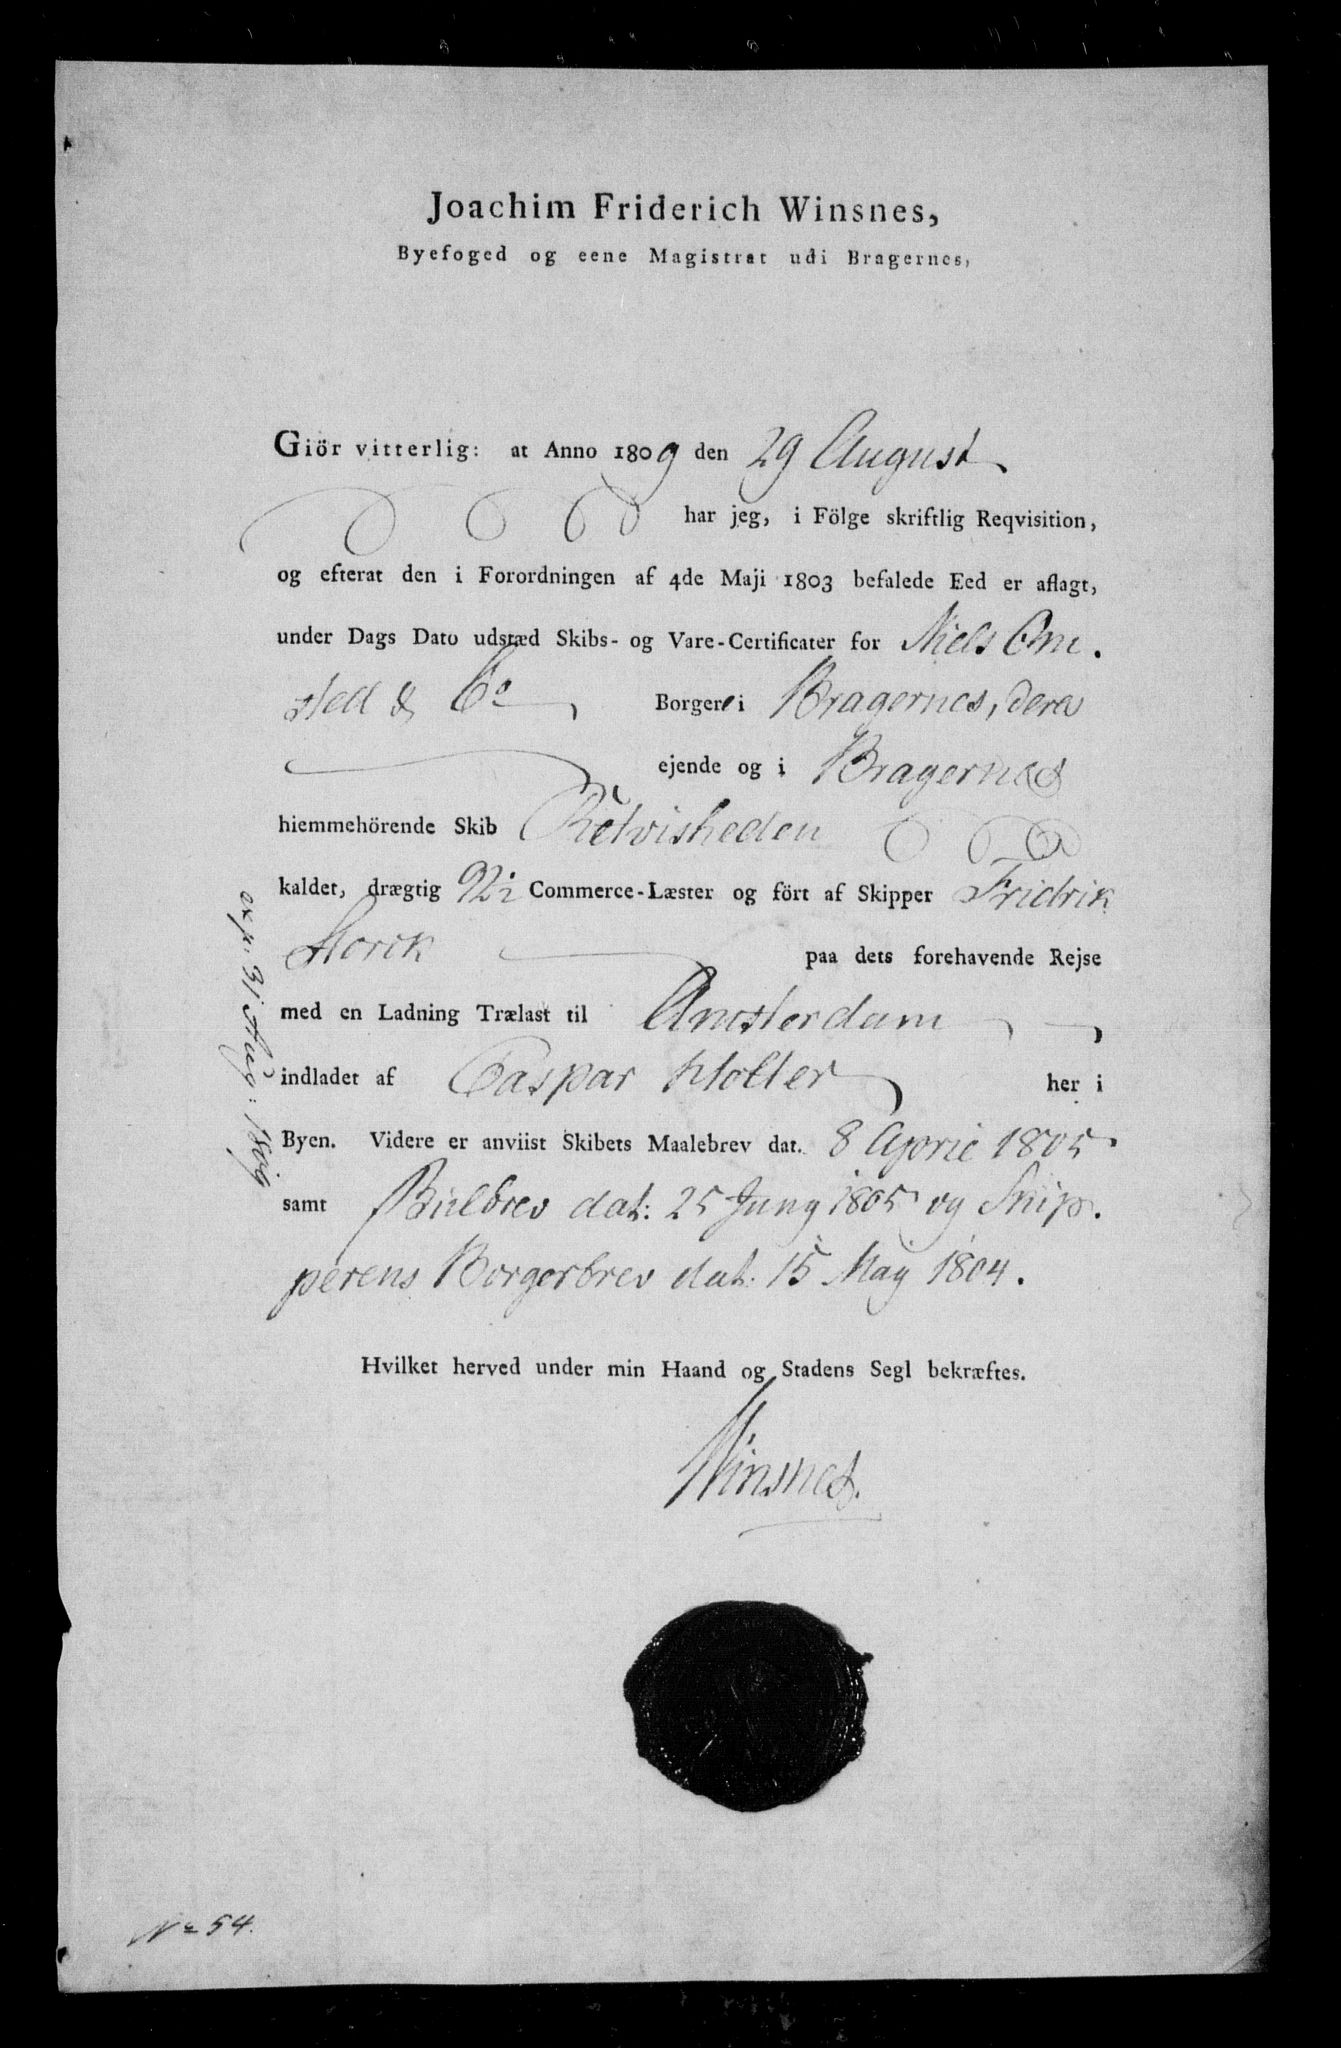 Joachim Friderich Winsnes,
Byefoged og eene Magistrat udi Bragernes,
Giör vitterlig: at Anno 1809 den 29 August
har jeg, i Fölge skriftlig Reqvisition,
og efterat den i Forordningen af 4de Maji 1803 befalede Eed er aflagt,
under Dags Dato udstæd Skibs- og Vare-Certificater for Niels Om.
sted & Co Borgere i Bragernes, dere
ejende og i Bragernes
hiemmehörende Skib Retvisheden
kaldet, drægtig 92½ Commerce-Læster og fört af Skipper Fridrik
Storck paa dets forehavende Rejse
med en Ladning Trælast til Amsterdam
indladet af Caspar Holter her i
Byen. Videre er anviist Skibets Maalebrev dat. 8 April 1805
samt Bielbrev dat: 25 Juny 1805 og Skip.
perens Borgerbrev dat: 15 May 1804.
Hvilket herved under min Haand og Stadens Segl bekræftes.
Winsnes.
exp. 31 Aug: 1809
No 54.